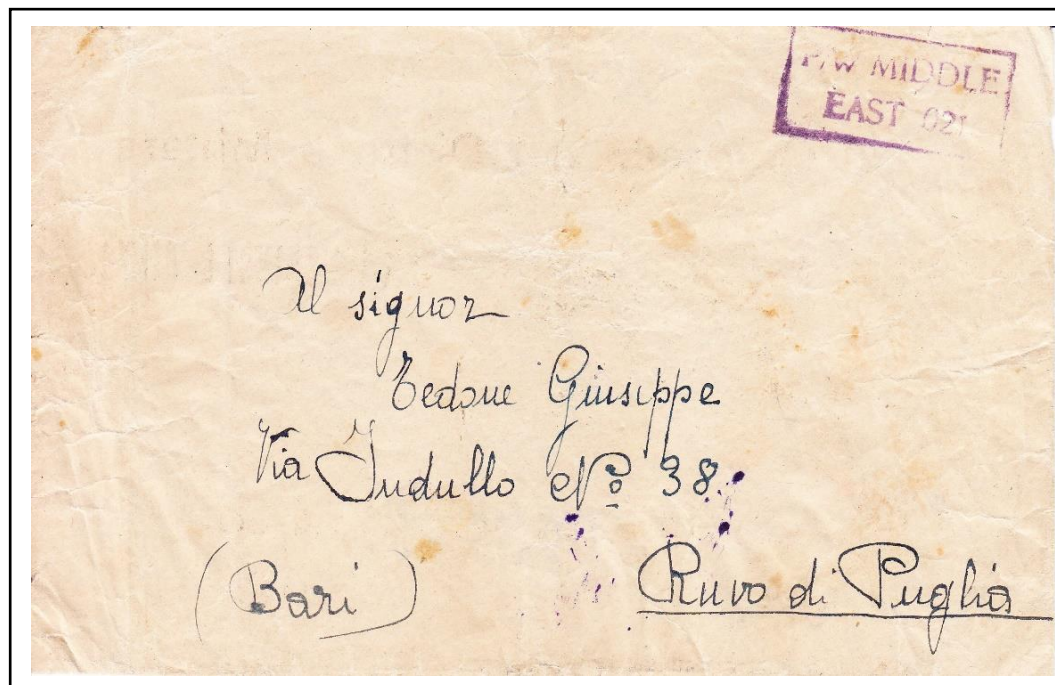 P/W MIDDLE
EAST 021
Al signor
Tedone Giuseppe
Via Indullo Nº 38
(Bari) Ruvo di Puglia